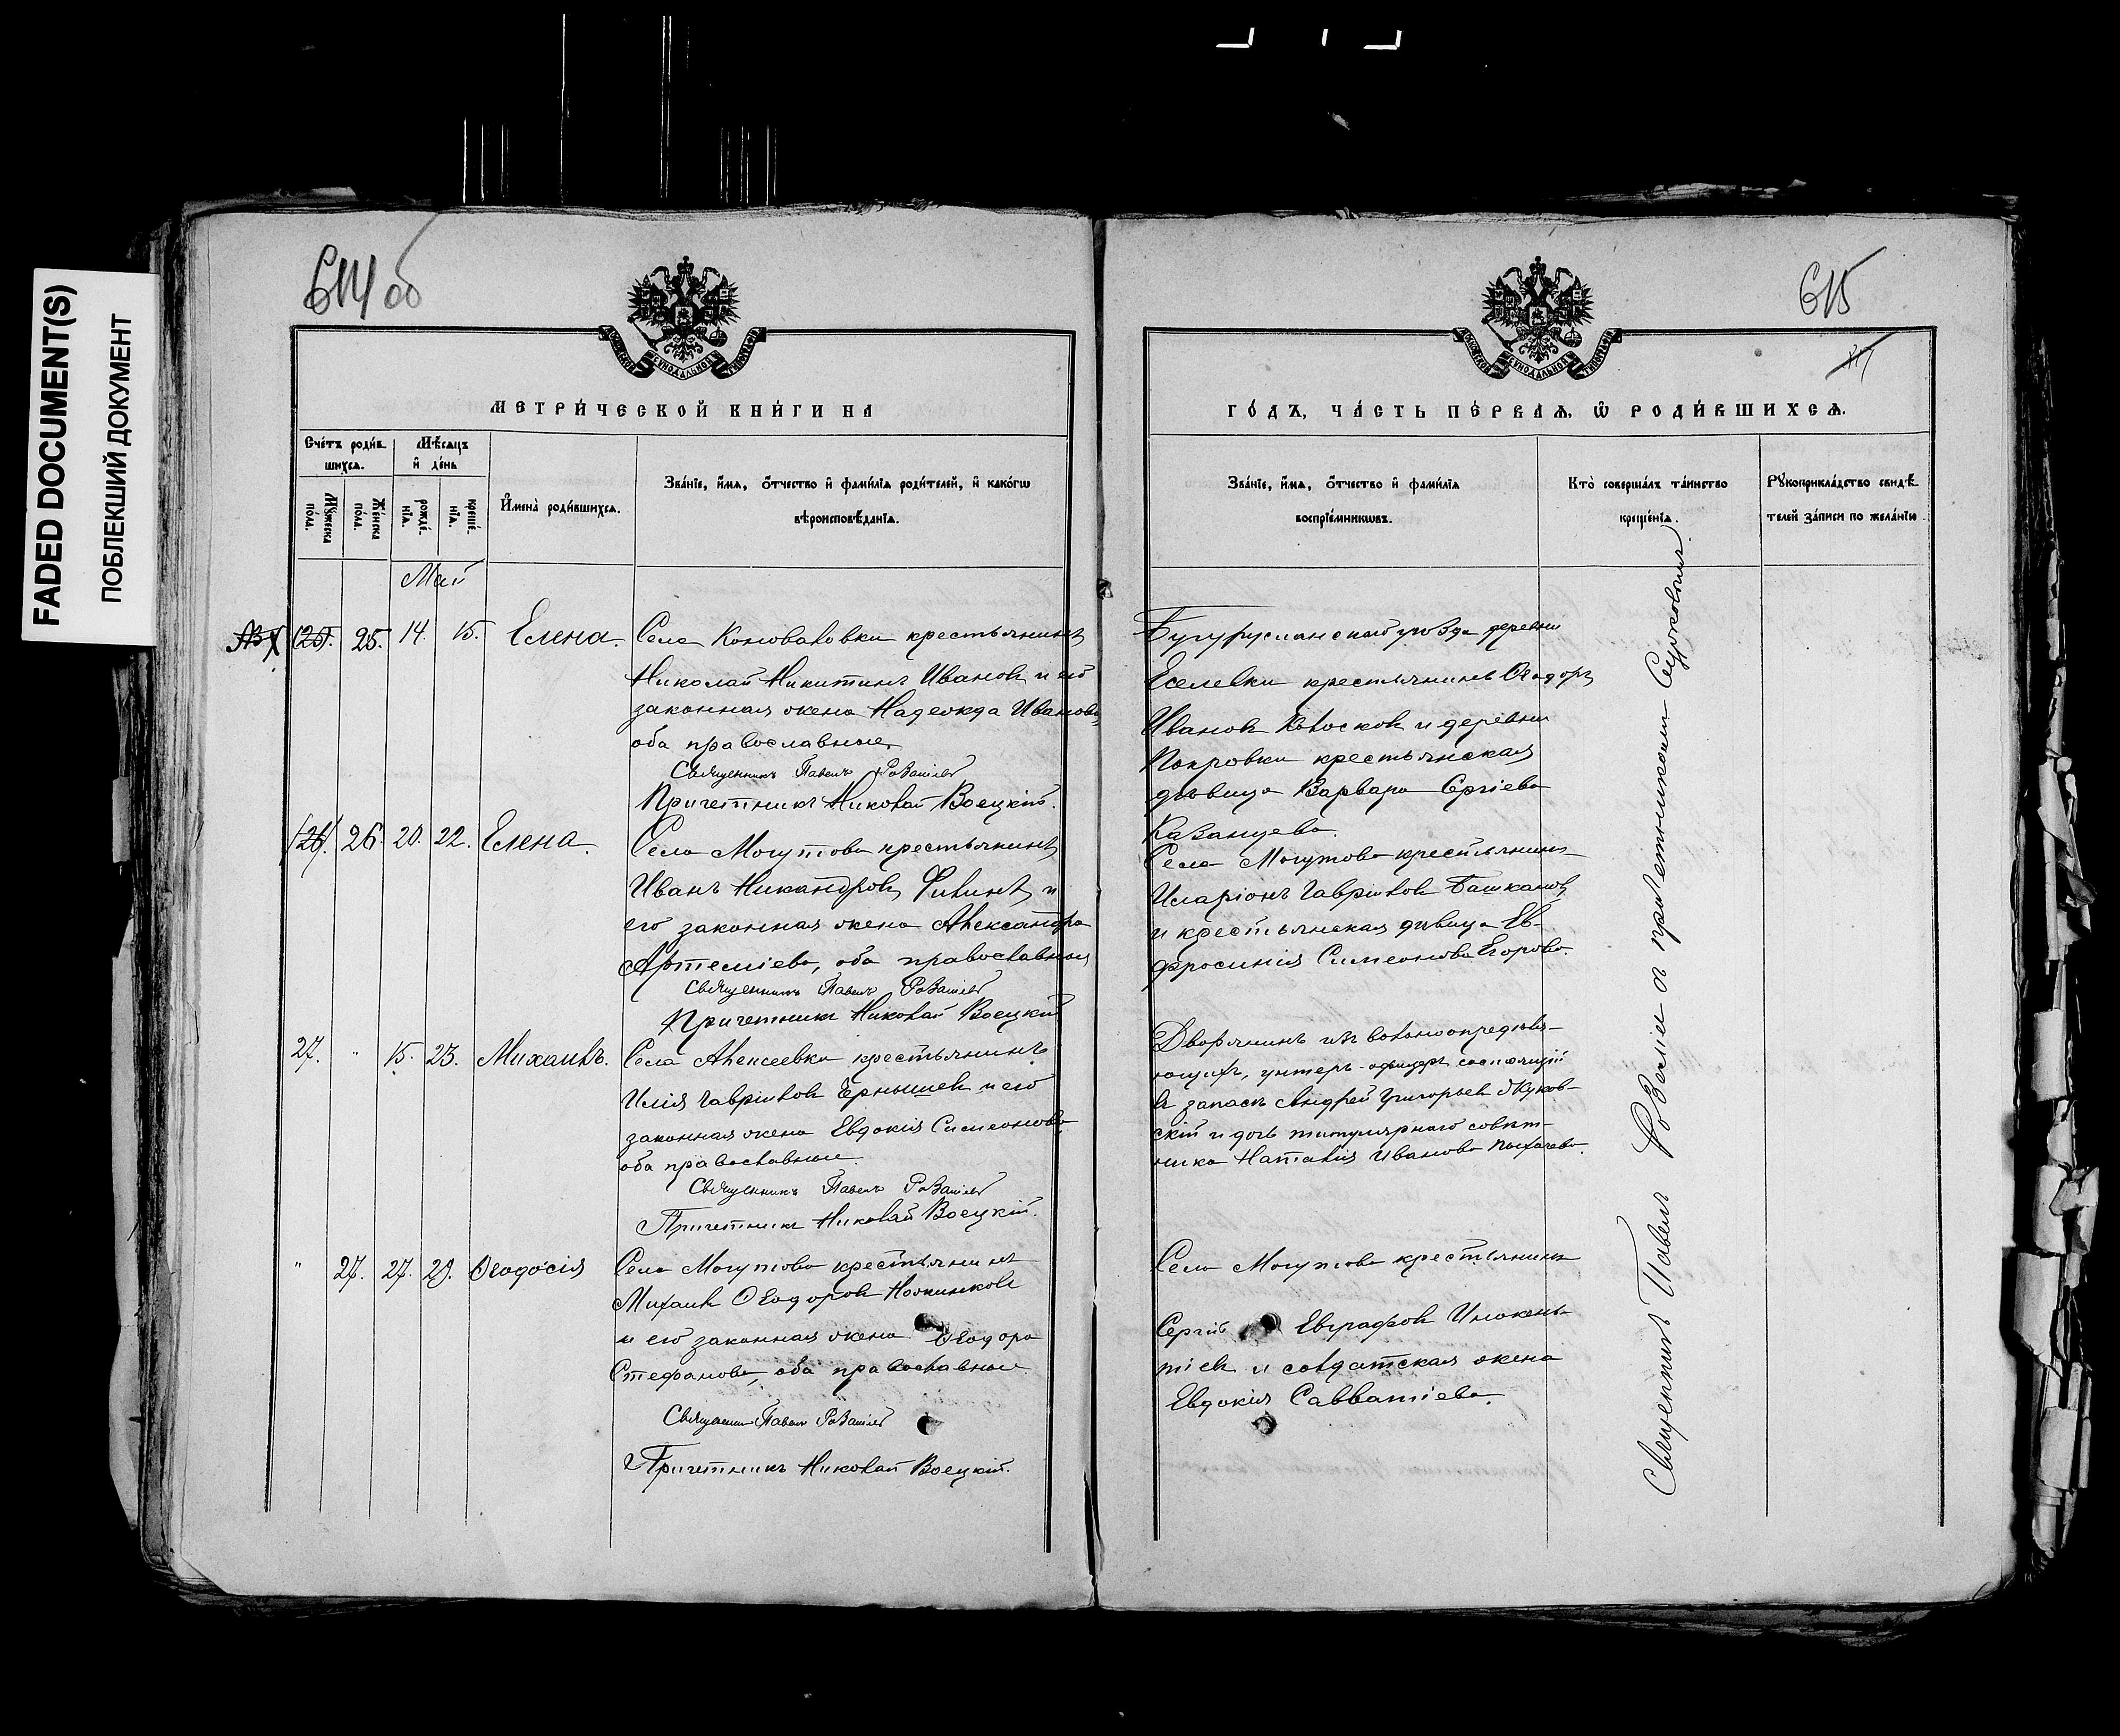 FADED DOCUMENT(S)
ПОБЛЕКШИЙ ДОКУМЕНТ
614 об
МЕТРИ́ЧЕСКОЙ КНИ́ГИ НА
Сче́тъ роди́в
шихся.
Мѣ́сяцъ
и де́нь
Мꙋ́жеска
по́ла.
Же́нска
по́ла.
рожде́
нїѧ.
креще́
нїѧ.
Имена̀ роди́вшихсѧ.
Зва́нїе, и́мѧ, ѻ҆́тчество и҆ фами́лїѧ роди́телей, и҆ како́гѡ
вѣроисповѣ́данїѧ.
Май
(25). 25. 14. 15. Елена.
Села Коноваловки крестьянинъ
Николай Никитинъ Ивановъ и его
законная жена Надежда Иванова,
оба православные.
Священникъ Павелъ
Причетникъ Николай Воецкій.
(26). 26. 20. 22. Елена.
Села Могутова крестьянинъ
Иванъ Никандровъ Филинъ и
его законная жена Александра
Артеміева, оба православные
Священникъ Павелъ
Причетникъ Николай Воецкій
27. " 15. 23. Михаилъ.
Села Алексеевки крестьянинъ
Илія Гавріиловъ Ернышевъ и его
законная жена Евдокія Симеонова,
оба православные.
Священникъ Павелъ
Причетникъ Николай Воецкій.
" 27. 27. 29. Ѳеодосія
Села Могутова крестьянинъ
Михаилъ Ѳеодоровъ
и его законная жена Ѳеодора
Стефанова, оба православные.
Священникъ Павелъ
Причетникъ Николай Воецкій.
615
ГО́ДЪ, ЧА́СТЬ ПЕ́РВАѦ, Ѡ҆ РОДИ́ВШИХСѦ.
Зва́нїе, и́мѧ, ѻ҆́тчество и҆ фами́лїѧ
воспрїе́мникѡвъ.
Кто̀ соверша́лъ та́инство
креще́нїѧ.
Рꙋкоприкла́дство свидѣ́
телей за́писи по жела́нїю
Бугурусланскаго уѣзда деревни
Еселевки крестьянинъ Ѳеодоръ
Ивановъ и деревни
Покровки крестьянская
дѣвица Варвара Сергіева
Казанцева.
Села Могутова крестьянинъ
Иларіонъ Гавріиловъ Башкановъ
и крестьянская дѣвица Ев-
фросинія Симеонова Егорова.
Дворянинъ изъ вольноопредѣля-
ющихъ, унтеръ-офицеръ состоящій
въ запасѣ Андрей Григорьевъ Жуков-
скій и дочь титулярнаго совѣт-
ника Наталія Иванова
Села Могутова крестьянинъ
Сергій Евграфовъ Инокень-
тіевъ и солдатская жена
Евдокія Савватіева.
Священникъ Павелъ съ причетникомъ